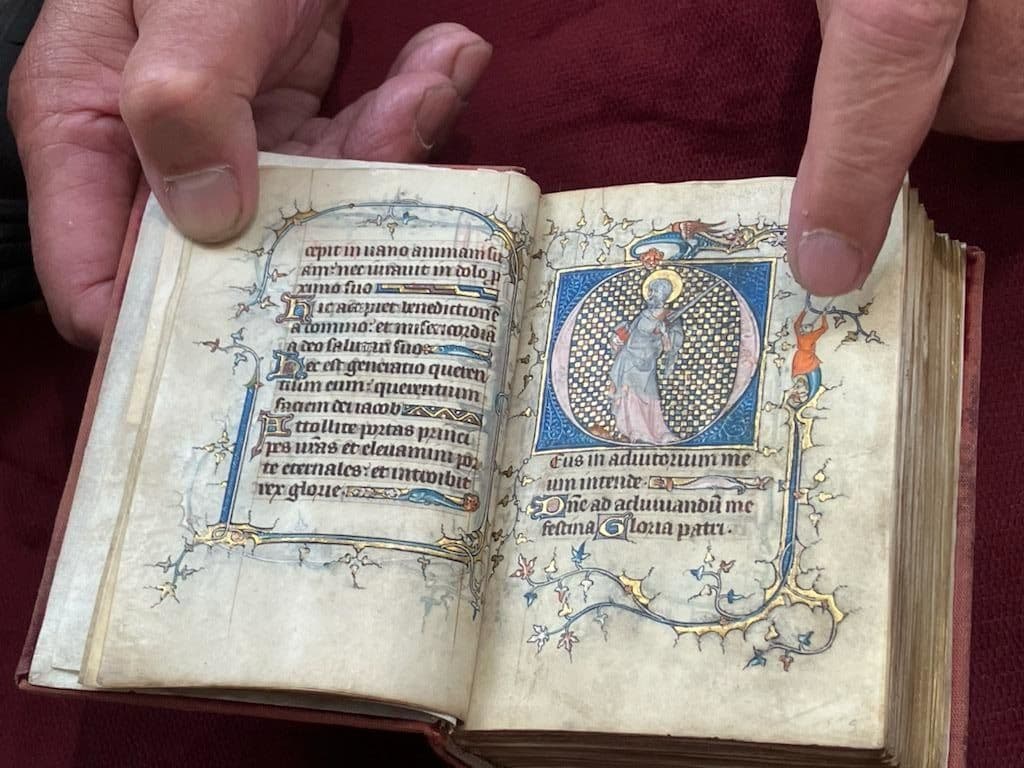 cepit in uano animam su
am: nec iurauit in dolo p
ximo suo
Hic accipiet benedictionē
a domino: et misericordiā
a deo salutari suo
Hec est generatio queren
tium eum: querentium
faciem dei iacob
Attollite portas princi
pes urās et eleuamini por
te eternales: et introibit
rex glorie
Deus in adiutorium me
um intende
Dn̄e ad adiuuandū me
festina Gloria patri.